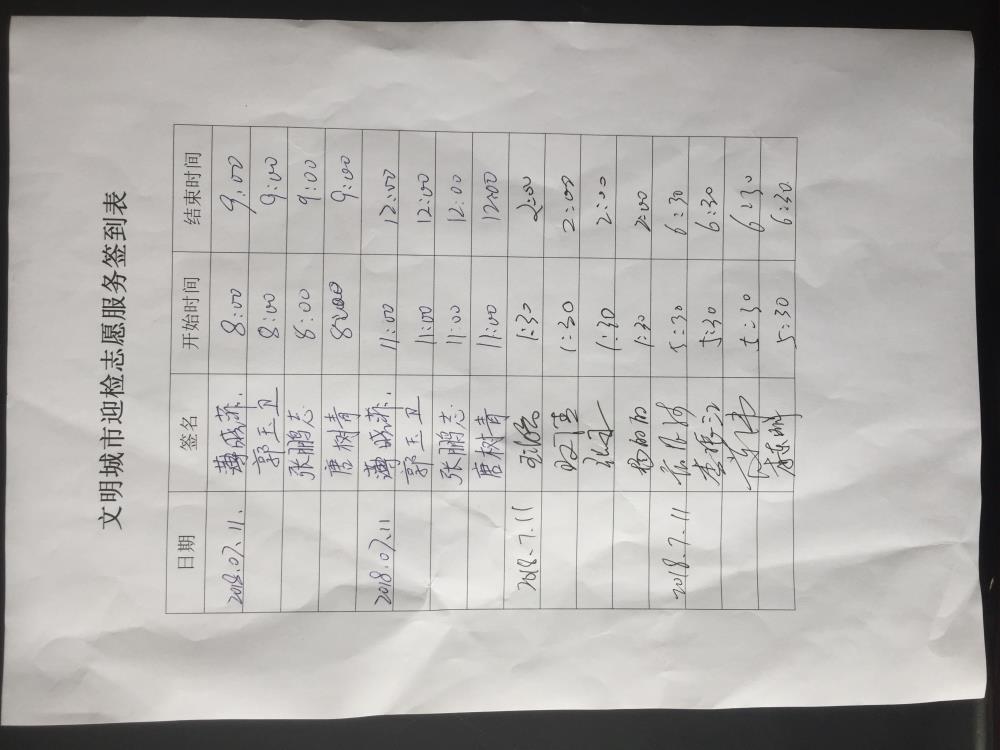 文明城市迎检志愿服务签到表
日期 签名 开始时间 结束时间
2018.07.11. 8:00 9:00
郭玉卫 8:00 9:00
张鹏志 8:00 9:00
唐树青 8:00 9:00
2018.07.11 11:00 12:00
郭玉卫 11:00 12:00
张鹏志 11:00 12:00
唐树青 11:00 12:00
2018.7.11 1:30 2:00
1:30 2:00
1:30 2:00
1:30 2:00
2018.7.11 5:30 6:30
5:30 6:30
5:30 6:30
5:30 6:30